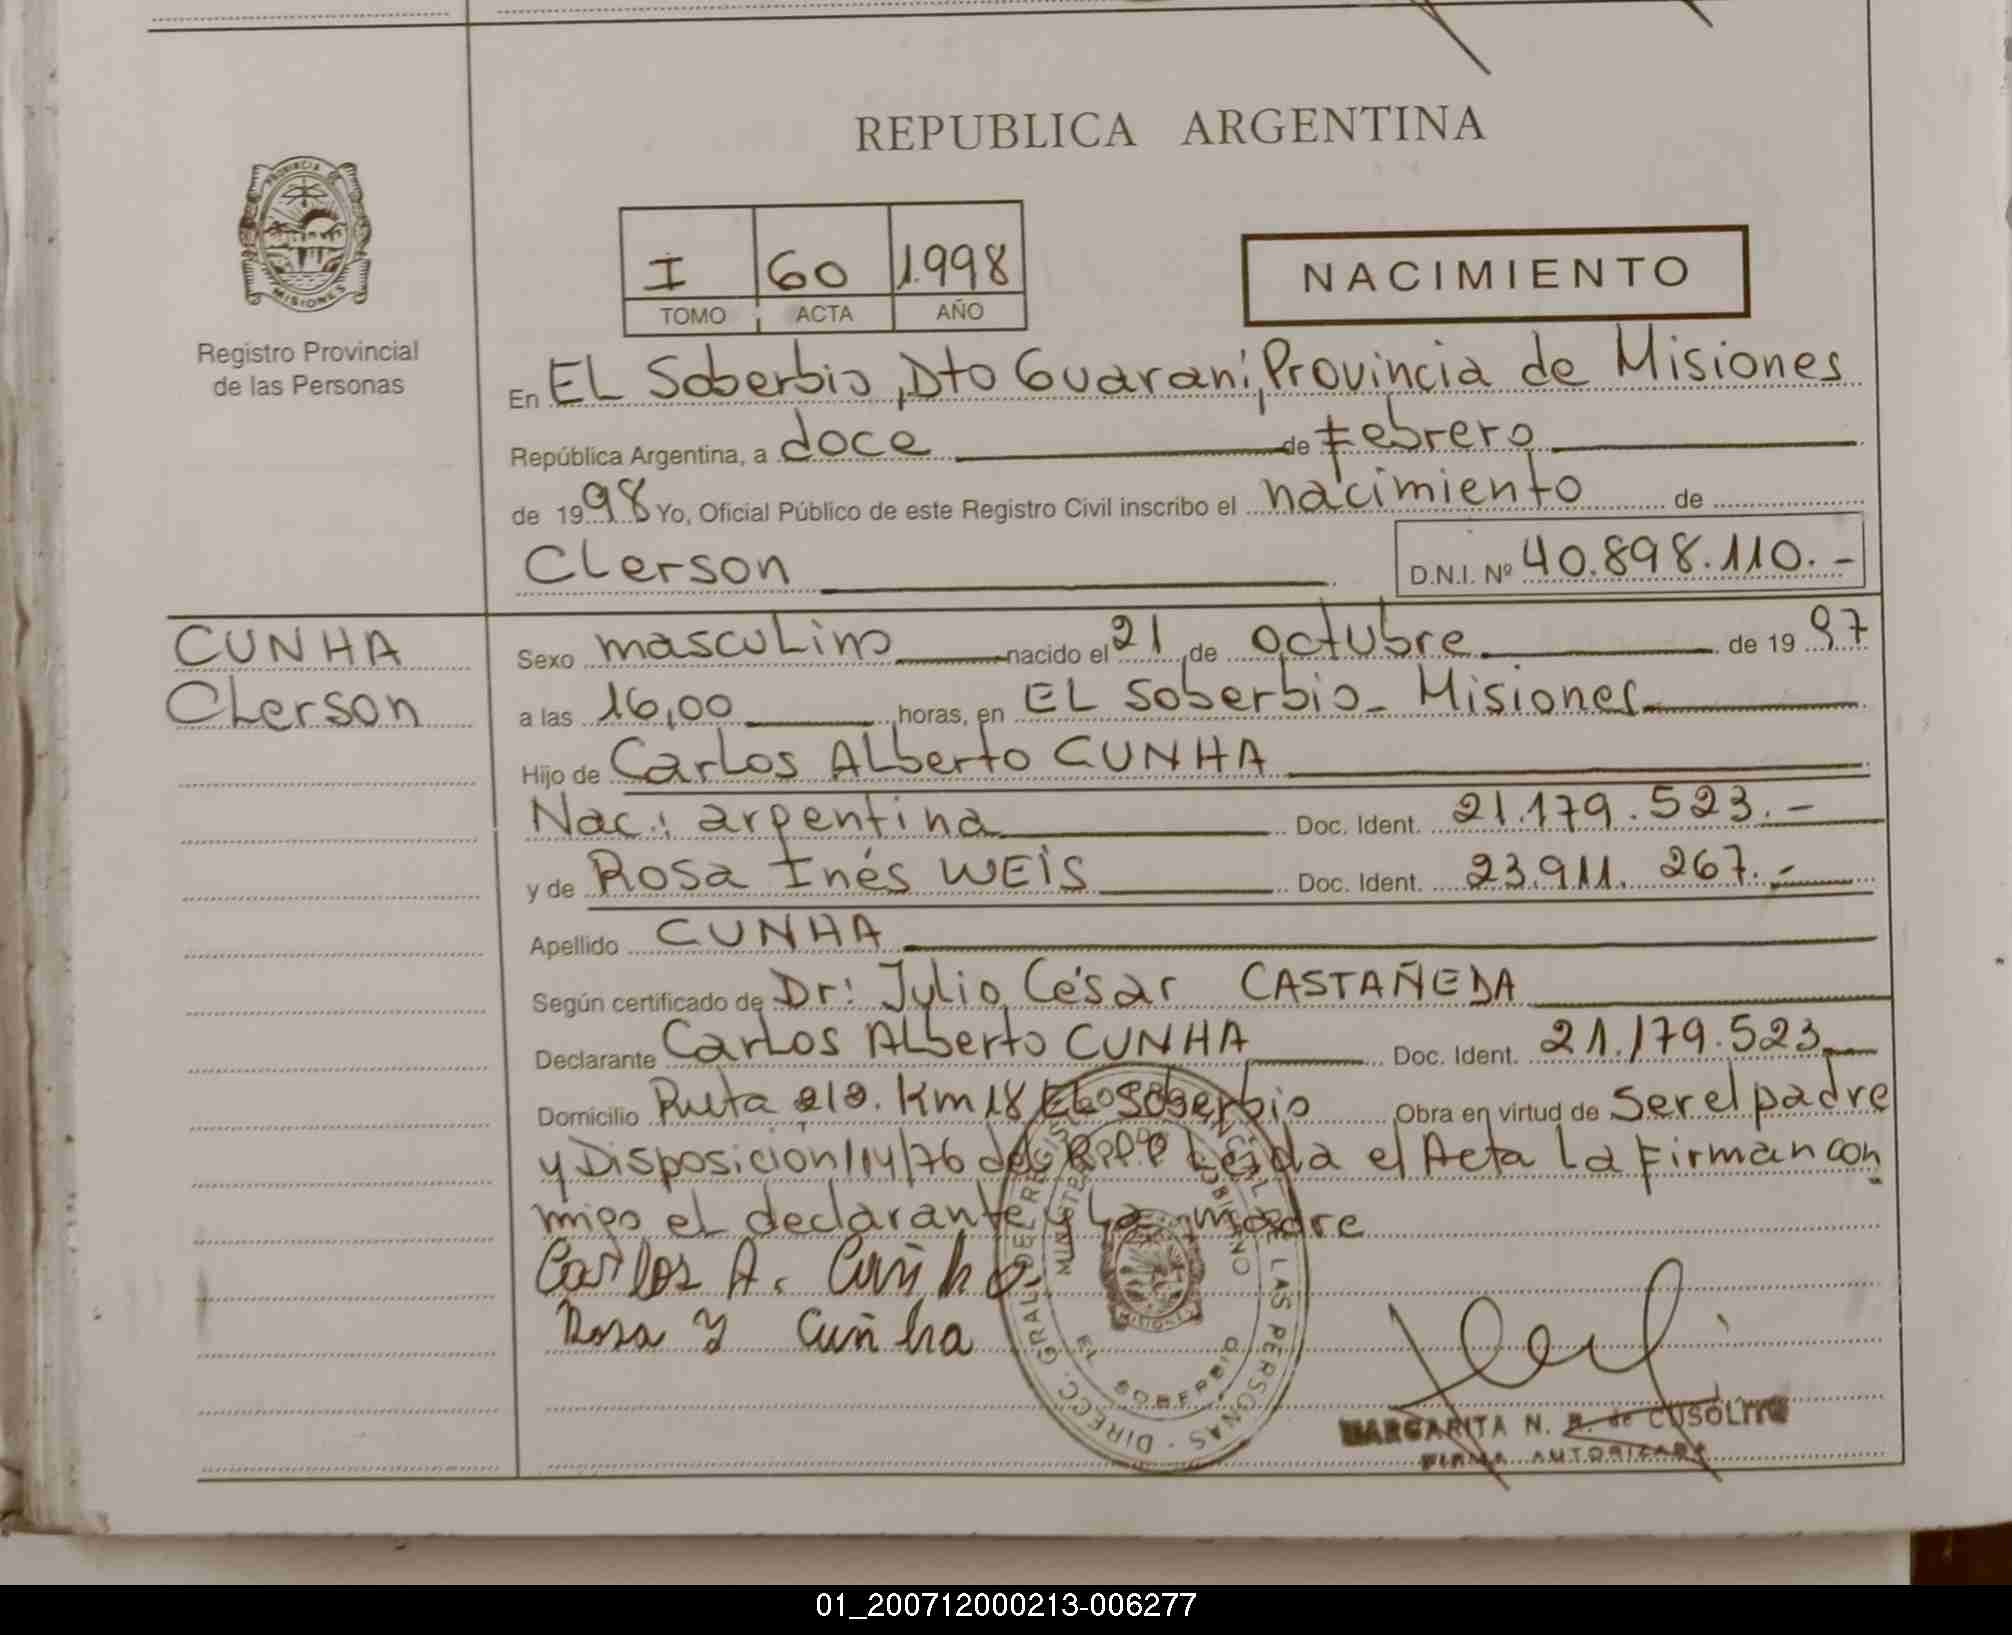 REPUBLICA ARGENTINA
PROVINCIA DE
MISIONES
Registro Provincial
de las Personas
I 60 1.998
TOMO ACTA AÑO
NACIMIENTO
En EL Soberbio, Dto Guaraní, Provincia de Misiones
República Argentina, a doce de Febrero
de 1998 Yo, Oficial Público de este Registro Civil inscribo el nacimiento de
Clerson D.N.I. Nº 40.898.110.-
CUNHA
Clerson
Sexo masculino nacido el 21 de octubre de 1997
a las 16,00 horas, en EL Soberbio - Misiones
Hijo de Carlos Alberto CUNHA
Nac.: argentina Doc. Ident. 21.179.523.-
y de Rosa Inés WEIS Doc. Ident. 23.911.267.-
Apellido CUNHA
Según certificado de Dr: Julio César CASTAÑEDA
Declarante Carlos Alberto CUNHA Doc. Ident. 21.179.523
Domicilio Ruta 212. Km 18 EL Soberbio Obra en virtud de Ser el padre
y Disposición 114/76 del R.P.P. Leída el Acta la Firman con
migo el declarante y la madre
Carlos A. Cuñha
Rosa Y Cuñha
DIRECC. GRAL. DEL REGISTRO PROVINCIAL DE LAS PERSONAS
MINISTERIO DE GOBIERNO
EL SOBERBIO
MISIONES
MARGARITA N. R. de CUSOLITO
FIRMA AUTORIZADA
01_200712000213-006277